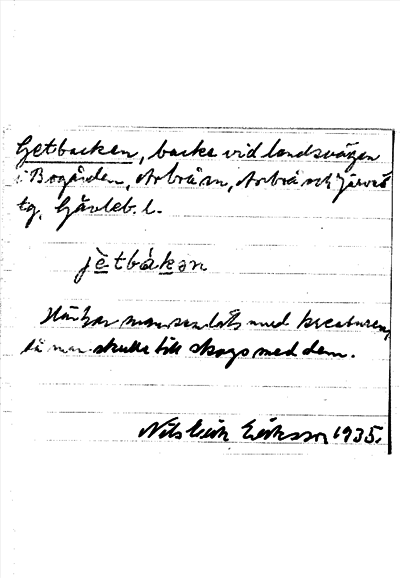 Getbacken, backe vid landsvägen
i Bogården, Arbrå sn, Arbrå och Järvsö
tg, Gävleb. l.
jètbákən
Här har man samlats med kreaturen,
då man skulle till skogs med dem.
Nils Erik Eriksson 1935.